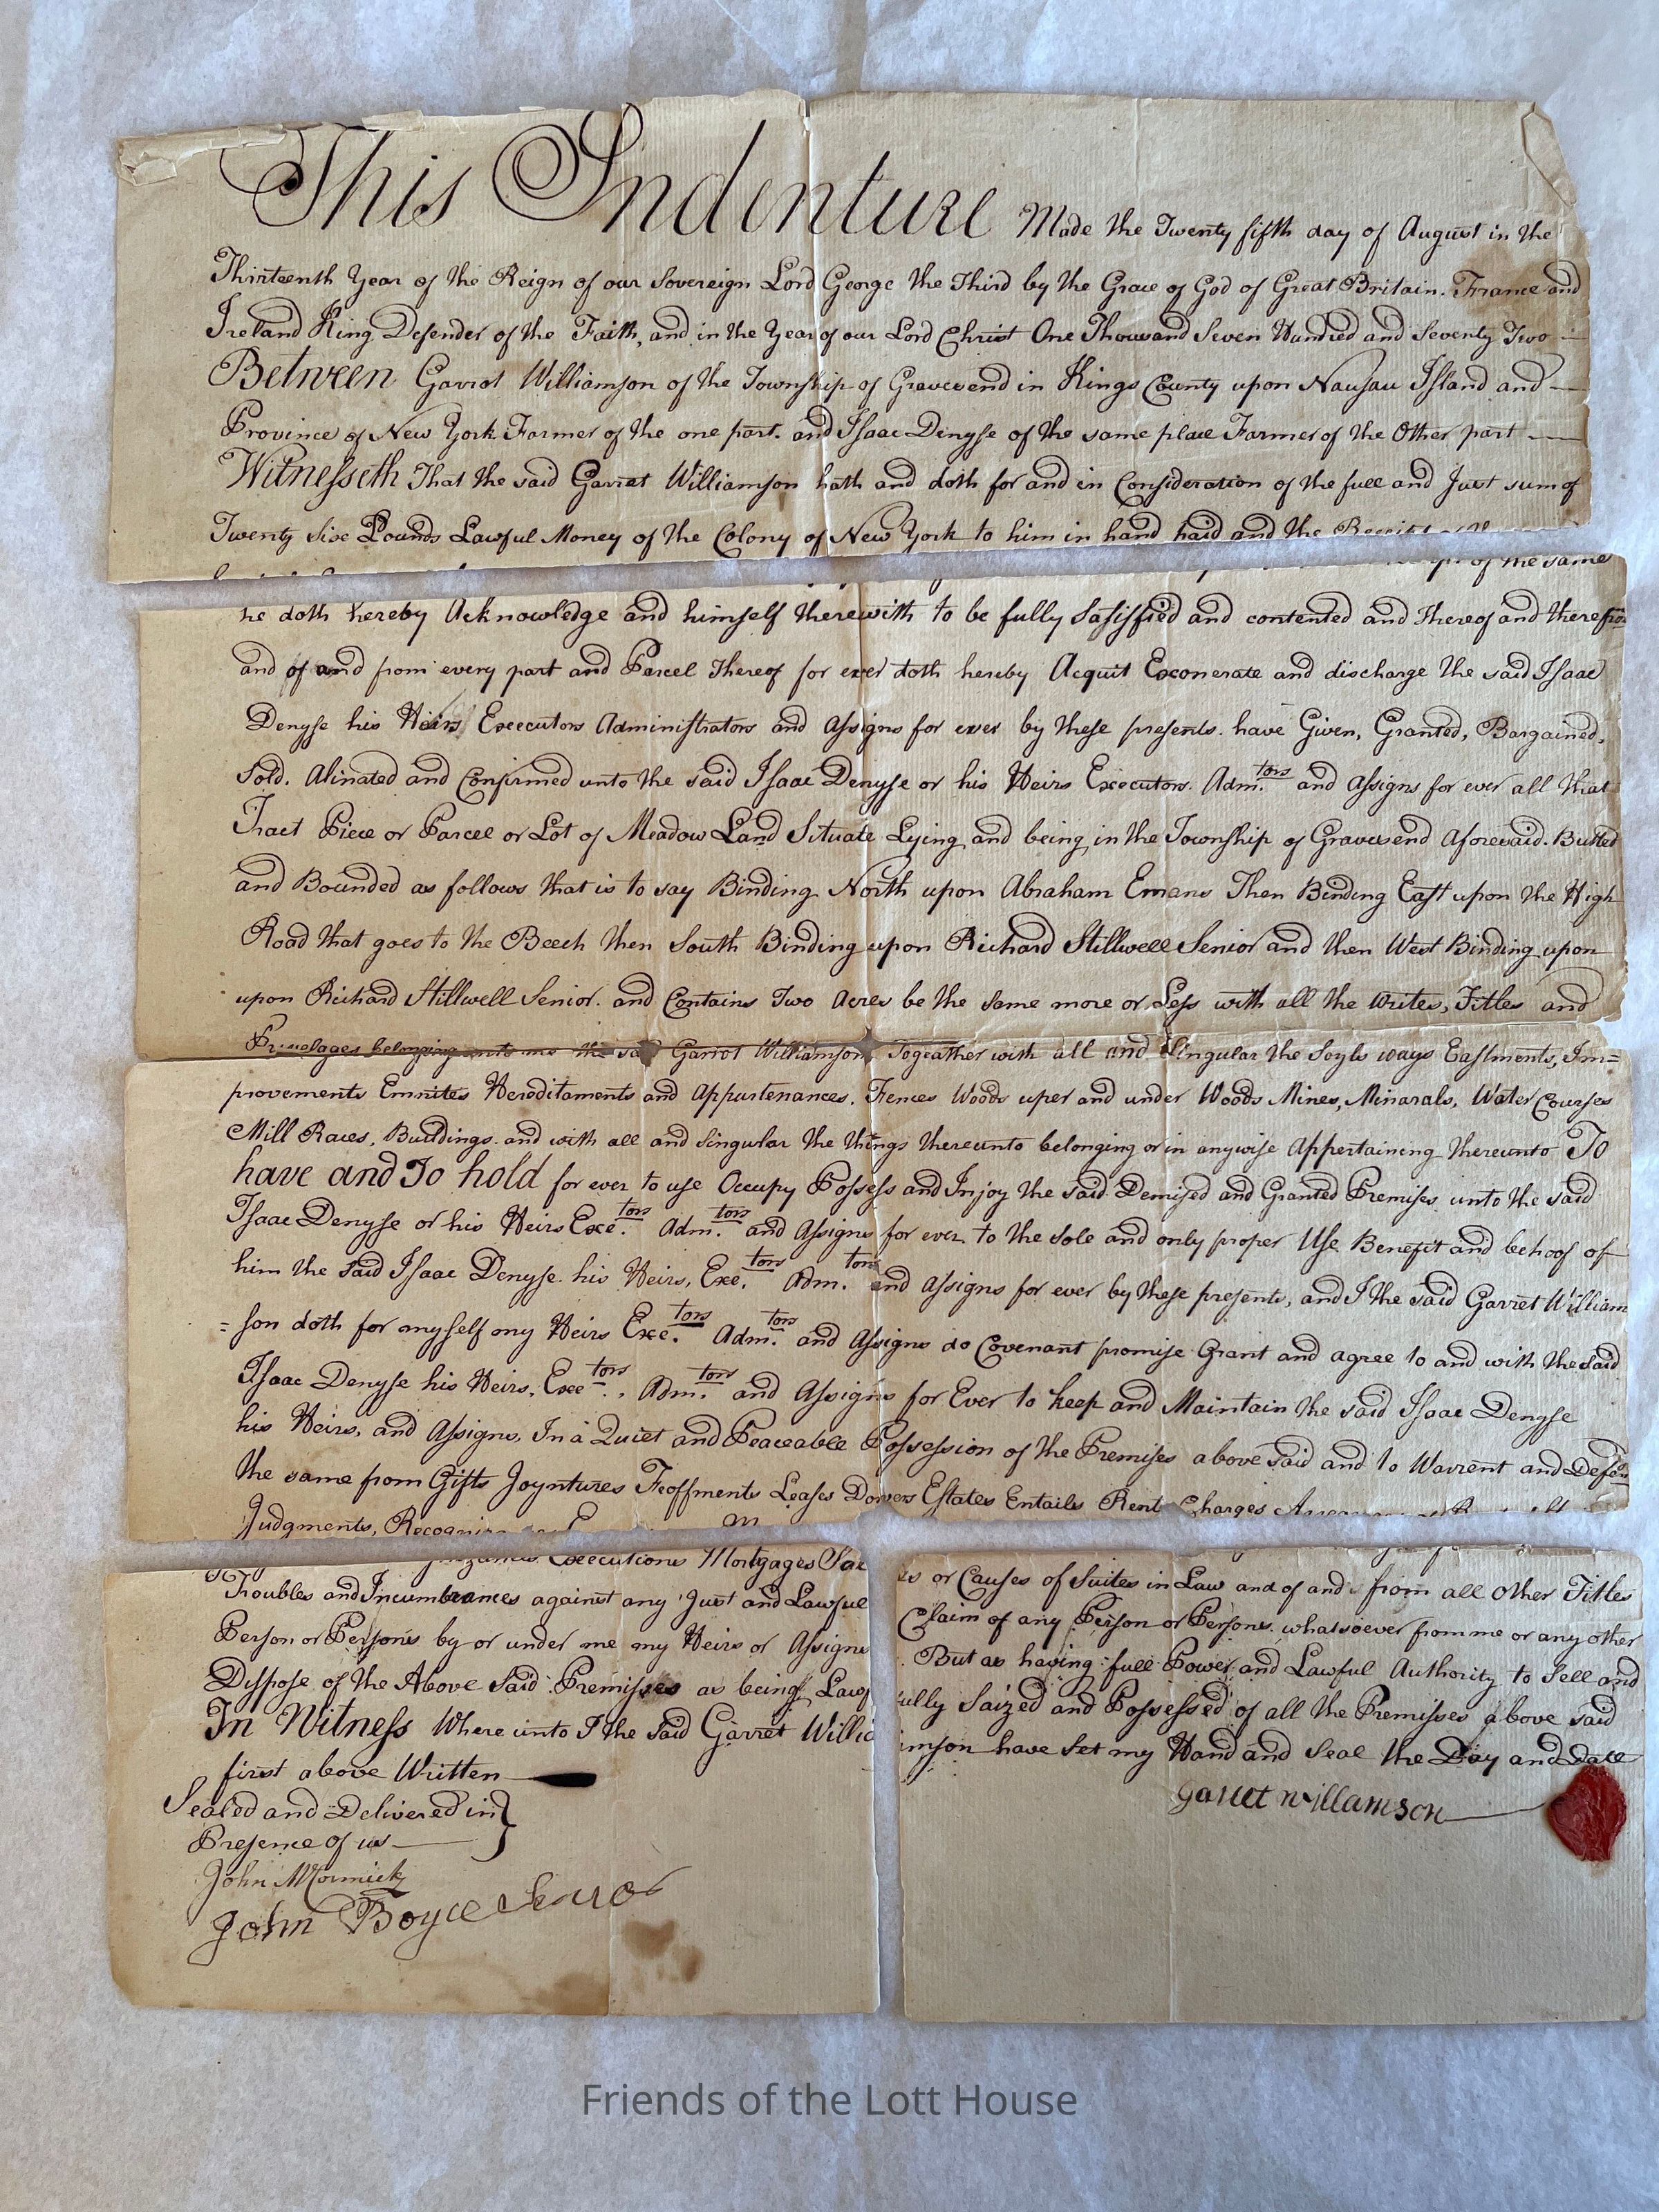 This Indenture Made the Twenty fifth day of August in the
Thirteenth Year of the Reign of our Sovereign Lord George the Third by the Grace of God of Great Britain. France and
Ireland King Defender of the Faith, and in the Year of our Lord Christ One Thousand Seven Hundred and Seventy Two
Between Garrot Williamson of the Township of Gravesend in Kings County upon Nausau Island and
Province of New York Farmer of the one part. and Isaac Denyse of the same place Farmer of the Other part
Witnesseth That the said Garrat Williamson hath and doth for and in Consideration of the full and Just sum of
Twenty Six Pounds Lawful Money of the Colony of New York to him in hand paid and the Receipt of the same
he doth hereby Acknowledge and himself therewith to be fully Satisffied and contented and Thereof and therefrom
and of and from every part and Parcel Thereof for ever doth hereby Acquit Exonerate and discharge the said Isaac
Denyse his Heirs Executors Administrators and Assigns for ever by these presents. have Given, Granted, Bargained,
Sold. Alinated and Confirmed unto the said Isaac Denyse or his Heirs Executors. Adm.tors and Assigns for ever all that
Tract Piece or Parcel or Lot of Meadow Land Situate Lying and being in the Township of Gravesend Aforesaid. Butted
and Bounded as follows that is to say Binding North upon Abraham Emans Then Binding East upon the High
Road that goes to the Beech then South Binding upon Richard Stillwell Senior and then West Binding upon
upon Richard Stillwell Senior. and Contains Two Acres be the Same more or Less with all the Writes, Titles and
Privelages belonging unto me the said Garrot Williamson Togeather with all and Singular the Soyls ways Eastments, Im=
provements Emnites Hereditaments and Appurtenances. Fences Woods uper and under Woods Mines, Minarals, Water Courses
Mill Races, Buildings. and with all and Singular the things thereunto belonging or in anywise Appertaining thereunto To
have and To hold for ever to use Occupy Possess and Injoy the said Demised and Granted Premises unto the said
Isaac Denyse or his Heirs Exe.tors Adm.tors and Assigns for ever to the Sole and only proper Use Benefit and behoof of
him the Said Isaac Denyse. his Heirs, Exe.tors Adm.tors and Assigns for ever by these presents, and I the said Garret William
=son doth for myself my Heirs Exe.tors Adm.tors and Assigns do Covenant promise Grant and agree to and with the Said
Isaac Denyse his Heirs, Exe.tors, Adm.tors and Assigns for Ever to keep and Maintain the said Isaac Denyse
his Heirs, and Assigns, In a Quiet and Peaceable Possession of the Premises above Said and to Warrent and Defend
the same from Gifts Joyntures Feoffments Leases Dowers Estates Entails Rent Charges
Judgments, Recognizances Executions Mortgages
Troubles and Incumbrances against any Just and Lawful Claim of any Person or Persons whatsoever from me or any other
Person or Persons by or under me my Heirs or Assigns But as having full Power and Lawful Authority to Sell and
Disspose of the Above Said Premisses as being Lawfully Saized and Possessed of all the Premisses above said
In Witness Where unto I the Said Garret Williamson have Set my Hand and Seal the Day and Date
first above Written
Sealed and Delivered in
Presence of us
Garret Willamson
John McCormick
John Boyce Senor
Friends of the Lott House